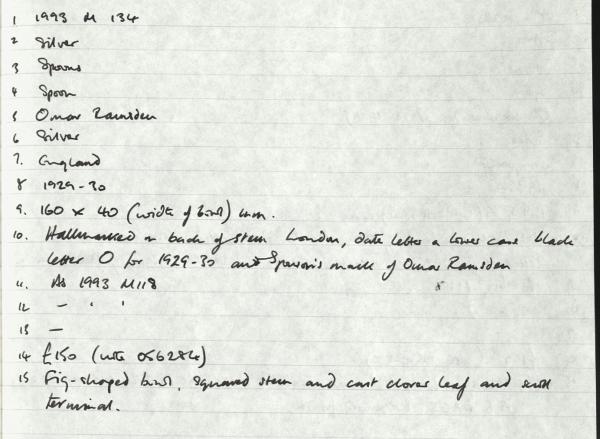 1 1993 M 134
2 Silver
3 Spoons
4 Spoon
5 Omar Ramsden
6 Silver
7. England
8 1929-30
9. 160 x 40 (width of bowl) mm.
10. Hallmarked on back of stem London, date letter a lower case black
letter O for 1929-30 and Sponsor's mark of Omar Ramsden
11. As 1993 M118
12 — " "
13 —
14 £150 (note 056284)
15 Fig-shaped bowl, squared stem and cast clover leaf and scroll
terminal.